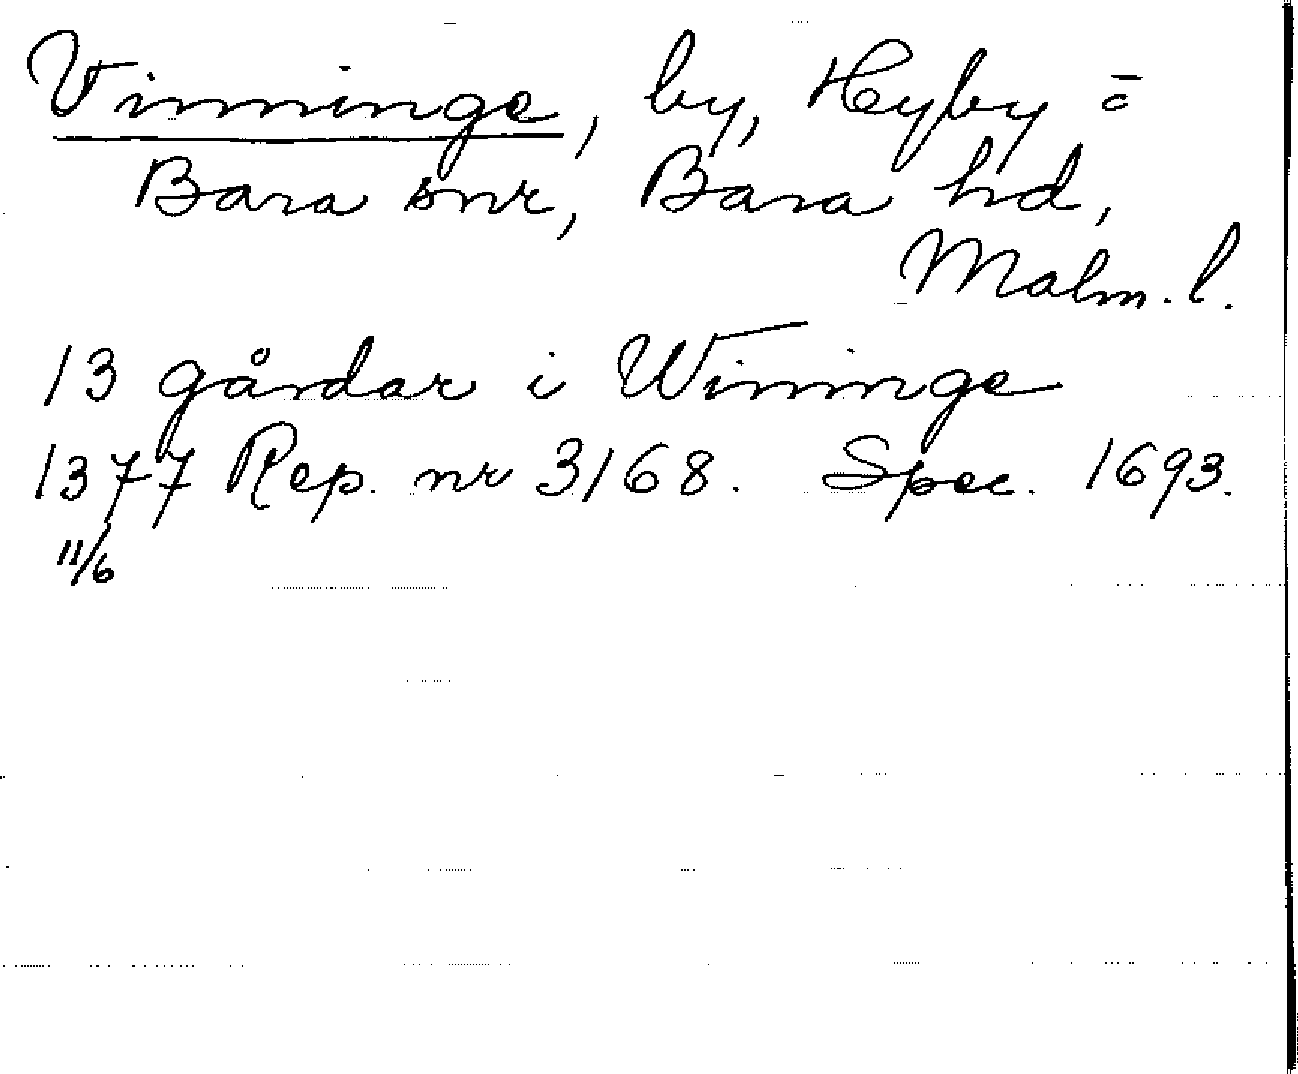 Vinninge, by, Hyby o
Bara snr, Bara hd,
Malm. l.
13 gårdar i Winninge
1377 Rep. nr 3168. Spec. 1693.
11/6